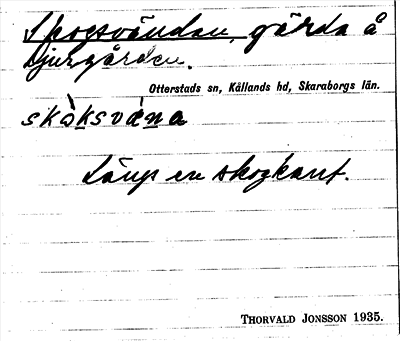 Skogsvändan, gärda å
Djurgården.
Otterstads sn, Kållands hd, Skaraborgs län.
skòksvǽna
Längs en skogkant.
THORVALD JONSSON 1935.